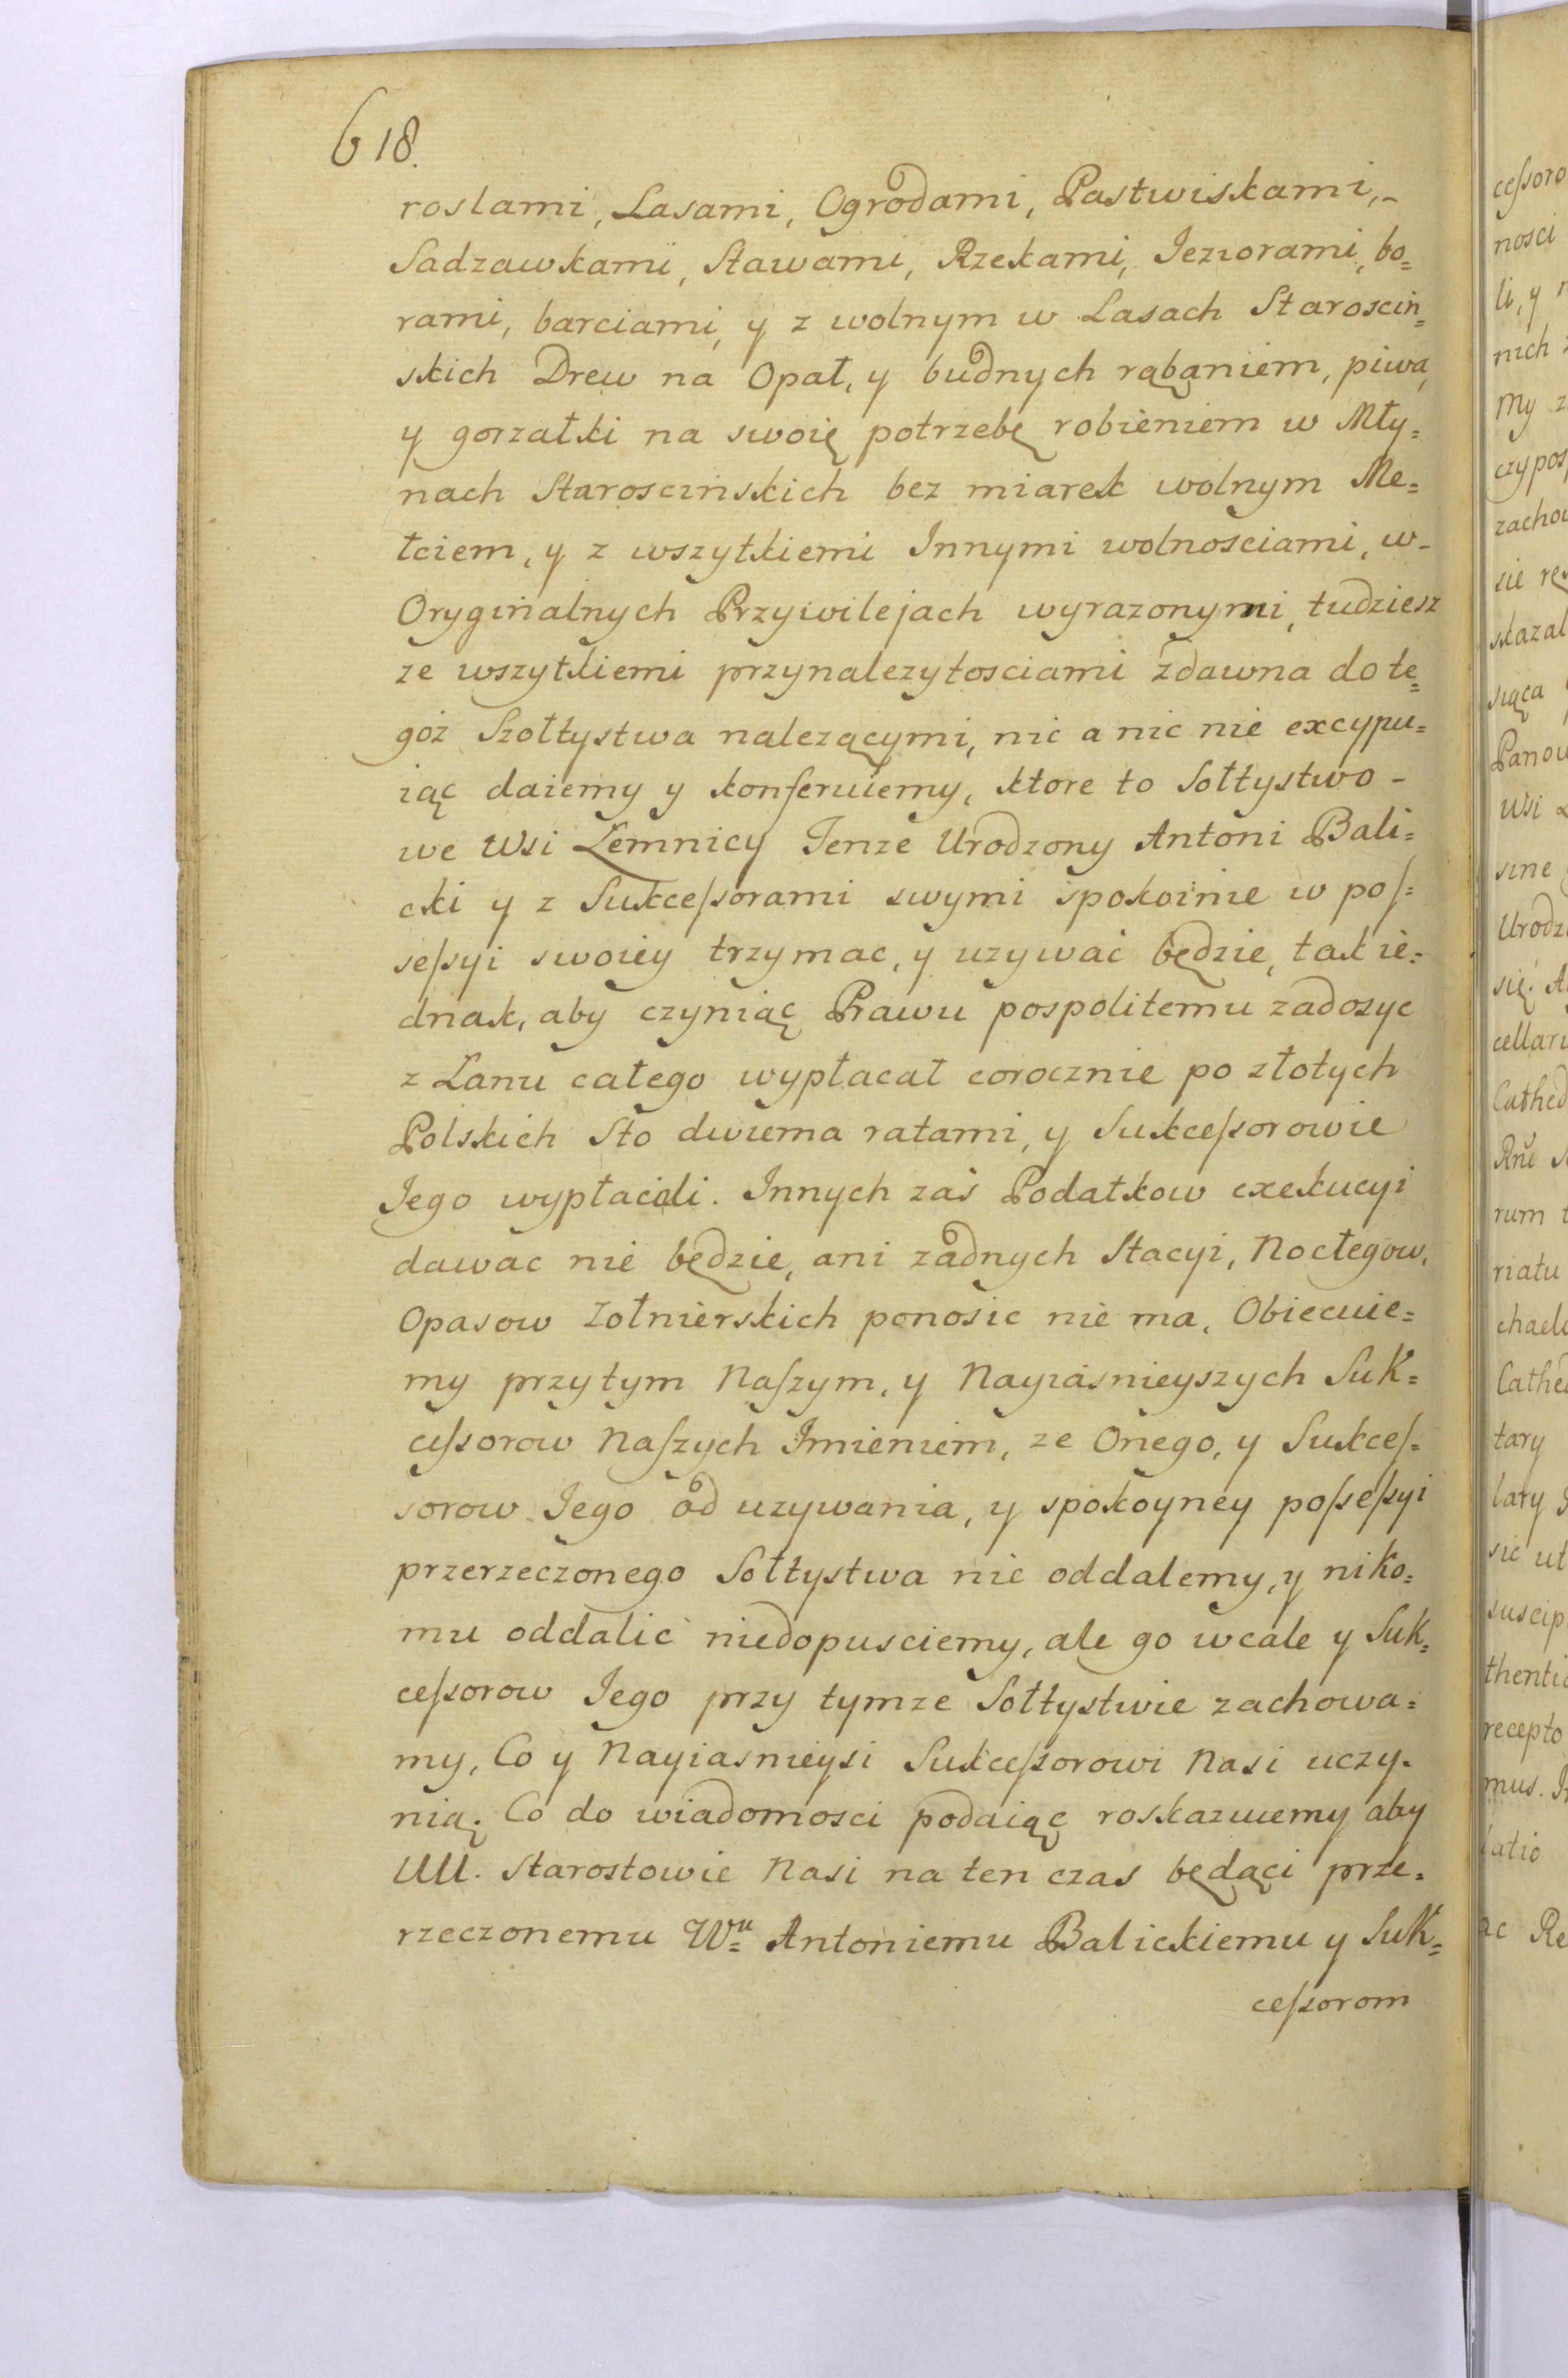 618.
roslami, Lasami, Ogrodami, Pastwiskami,-
Sadzawkami, Stawami, Rzekami, Jeziorami, bo=
rami, barciami, y z wolnym w Lasach Starosciń=
skich Drew na Opał, y budnych rąbaniem, piwa,
y gorzałki na swoię potrzebę robieniem w Mły=
nach Staroscińskich bez miarek wolnym Me=
łciem, y z wszytkiemi Innymi wolnosciami, w-
Oryginalnych Przywilejach wyrazonymi, tudziesz
ze wszytkiemi przynalezytosciami zdawna do te=
goż Szołtystwa nalezącymi, nic a nic nie excypu=
iąc daiemy y konferuiemy, ktore to Sołtystwo-
we Wsi Łemnicy Jenze Urodzony Antoni Bali=
cki y z Sukceſsorami swymi spokoinie w poſ=
seſsyi swoiey trzymac, y uzywać będzie, tak ie=
dnak, aby czyniąc Prawu pospolitemu zadosyc
z Łanu całego wypłacał corocznie po złotych
Polskich Sto dwiema ratami, y Sukceſsorowie
Jego wypłacili. Innych zaś Podatkow exekucyi
dawac nie będzie, ani zadnych Stacyi, Noclegow,
Opasow Zołnierskich ponosic nie ma, Obiecuie=
my przytym Naſzym, y Nayiasnieyszych Suk=
ceſsorow Naſzych Imieniem, ze Onego, y Sukceſ=
sorow Jego od uzywania, y spokoyney poſseſsyi
przerzeczonego Sołtystwa nie oddalemy, y niko=
mu oddalić niedopusciemy, ale go wcale y Suk=
ceſsorow Jego przy tymze Sołtystwie zachowa=
my, Co y Nayiasnieysi Sukceſsorowi Nasi uczy=
nią. Co do wiadomosci podaiąc roskazuiemy aby
UU. Starostowie Nasi na ten czas będąci prze=
rzeczonemu Wu Antoniemu Balickiemu y Suk=
ceſsorom
ceſsoro
nosci
li, y
nich
My z
czypos
zacho
sie
skazal
siąca
Panow
Wsi
sine
Urodz
się. A
cellari
Cathed
rum
riatu
chael
Cathe
tary
lary
sic ut
suscip
thentic
recepto
mus.
latio
ac Re